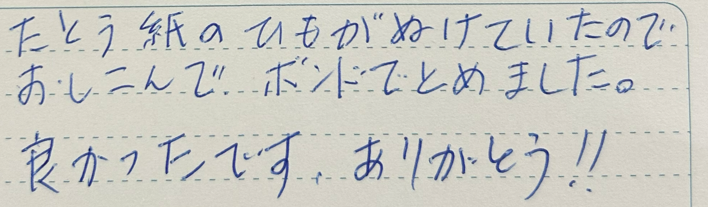 たとう紙のひもがぬけていたので
おしこんで、ボンドでとめました。
良かったです、ありがとう!!